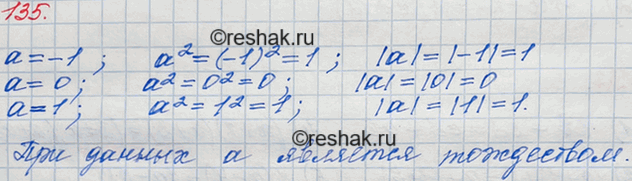 135.
©reshak.ru
a = -1 ; a² = (-1)² = 1 ; |a| = |-1| = 1
a = 0 ; a² = 0² = 0 ; |a| = |0| = 0
a = 1 ; a² = 1² = 1 ; |a| = |1| = 1.
©reshak.ru
При данных a является тождеством.